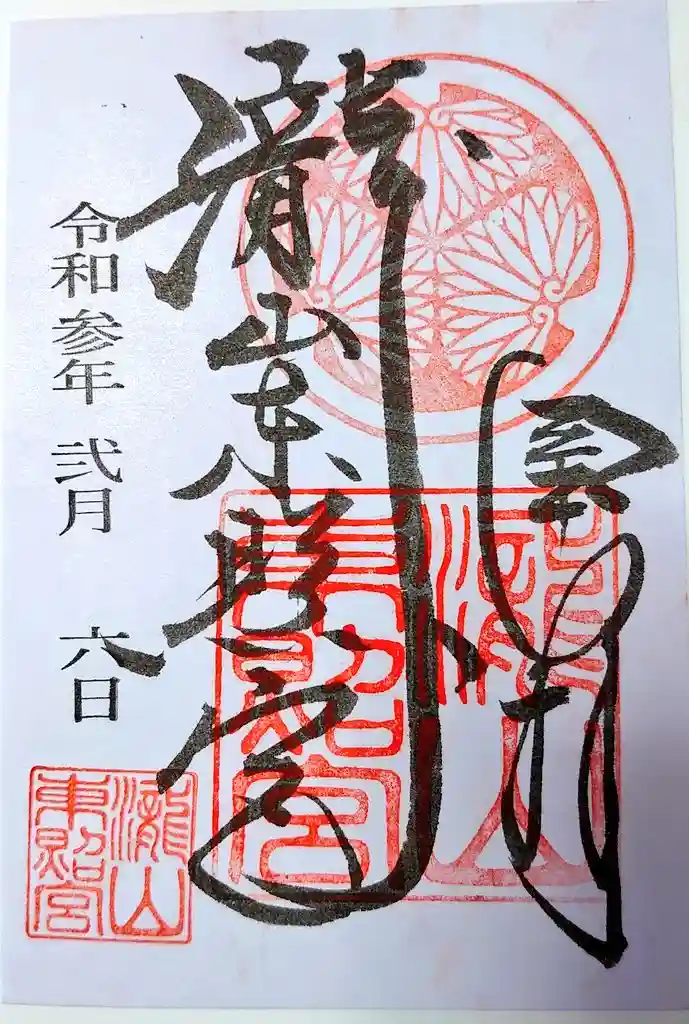 奉拝
瀧山東照宮
瀧山
東照宮
令和参年 弐月 六日
瀧山
東照宮